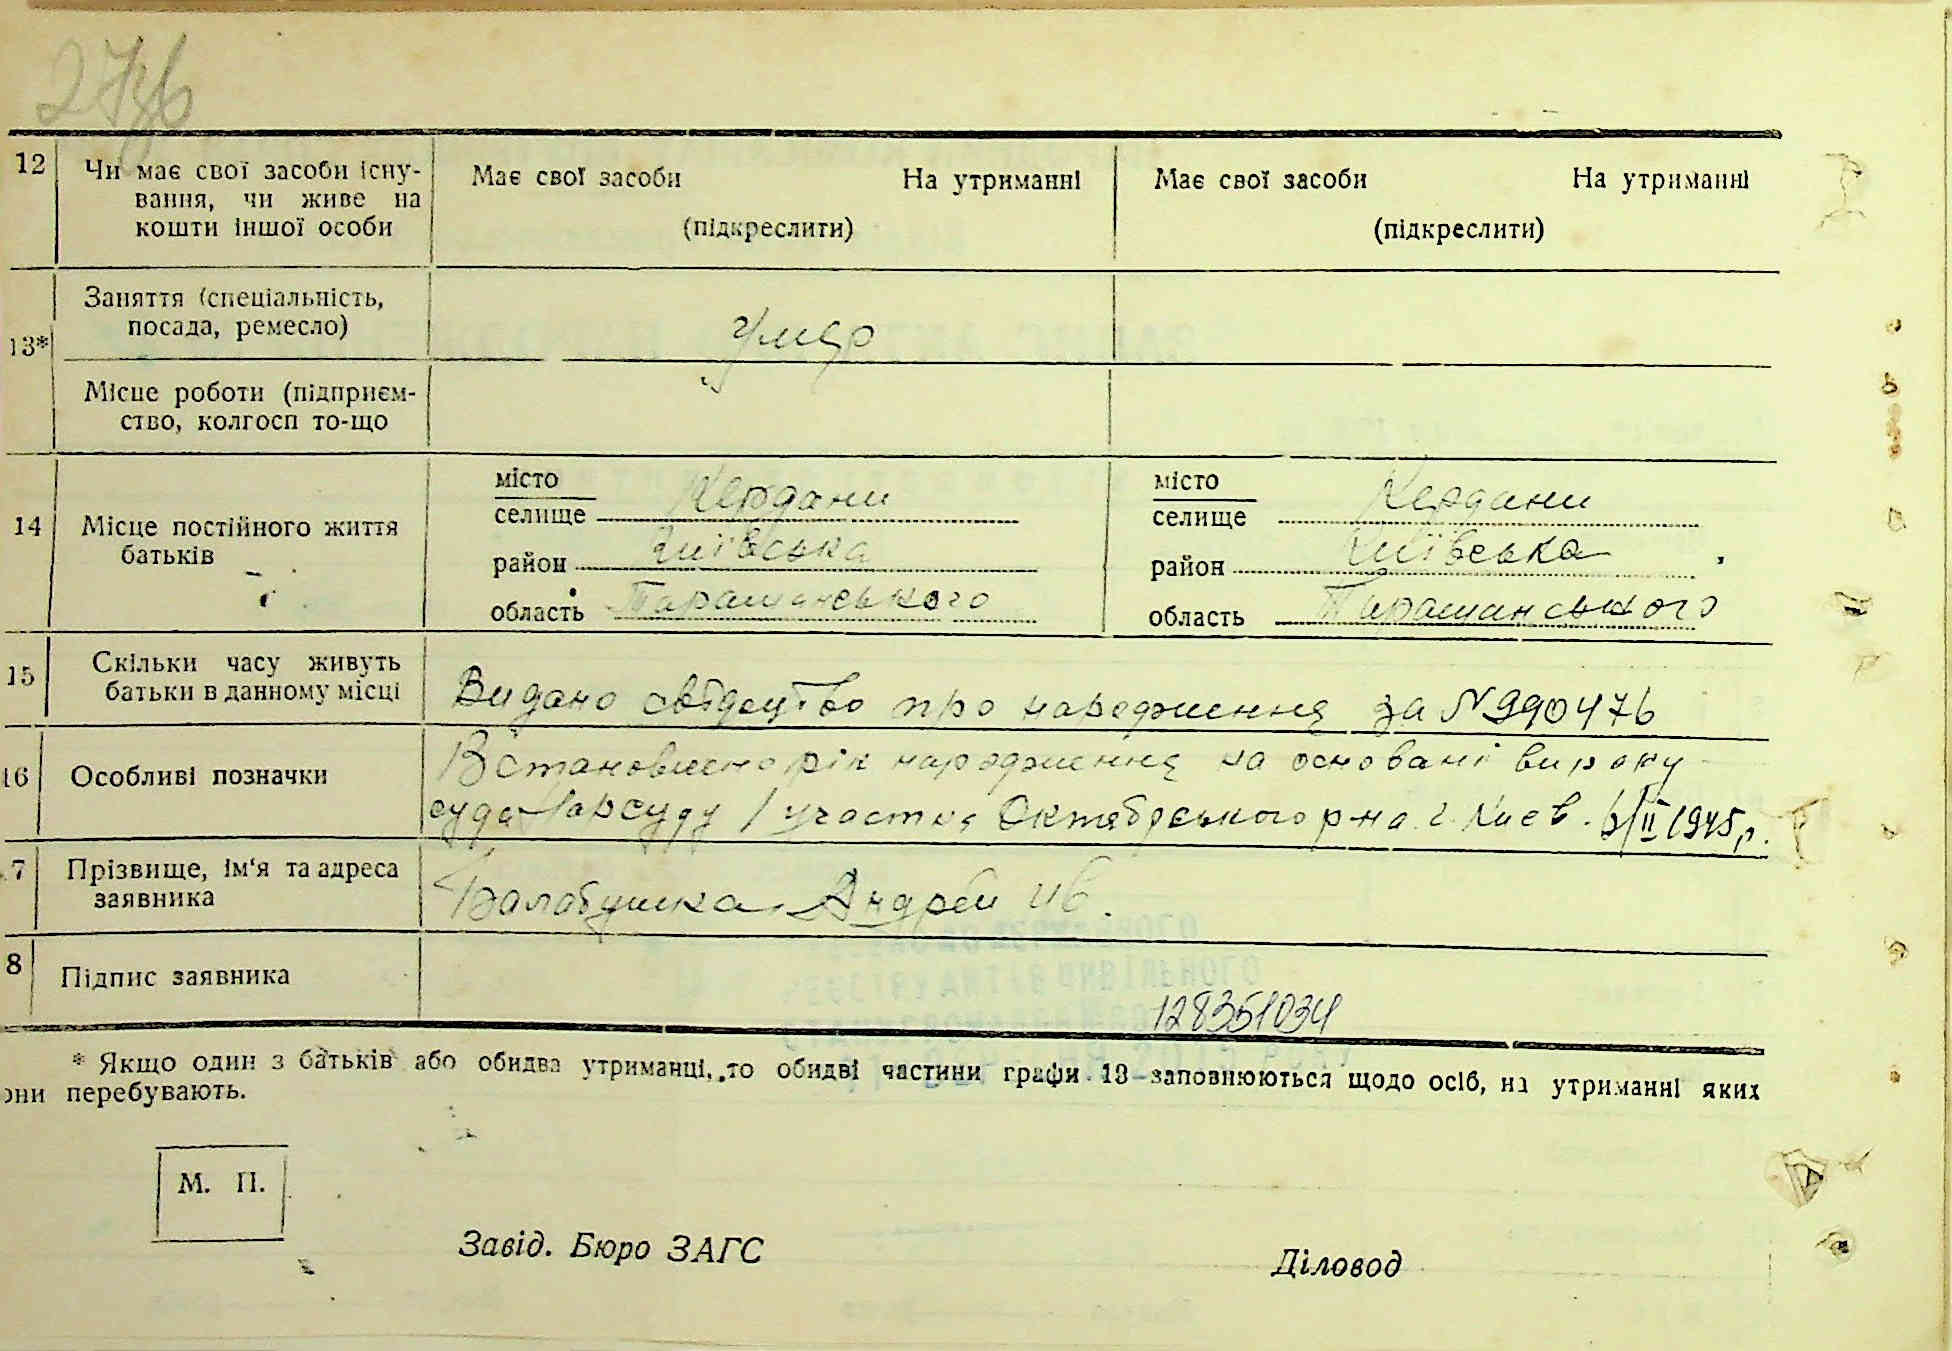 27зв
12 Чи має свої засоби існу-
вання, чи живе на
кошти іншої особи
Має свої засоби На утриманні
(підкреслити)
Має свої засоби На утриманні
(підкреслити)
13* Заняття (спеціальність,
посада, ремесло)
умер
Місце роботи (підприєм-
ство, колгосп то-що
14 Місце постійного життя
батьків
місто
селище Кердани
район Київська
область Таращанського
місто
селище Кердани
район Київська
область Таращанського
15 Скільки часу живуть
батьки в данному місці
Видано свідоцтво про народження за N 990476
16 Особливі позначки
Встановлено рік народження на основані вироку
суда Нарсуду 1 участка Октябрського р-на г. Києв. 6/II 1945 р.
7 Прізвище, ім'я та адреса
заявника
Балабушка Андрей Ив.
8 Підпис заявника
128351034
* Якщо один з батьків або обидва утриманці, то обидві частини графи 13 заповнюються щодо осіб, на утриманні яких
они перебувають.
М. П.
Завід. Бюро ЗАГС
Діловод